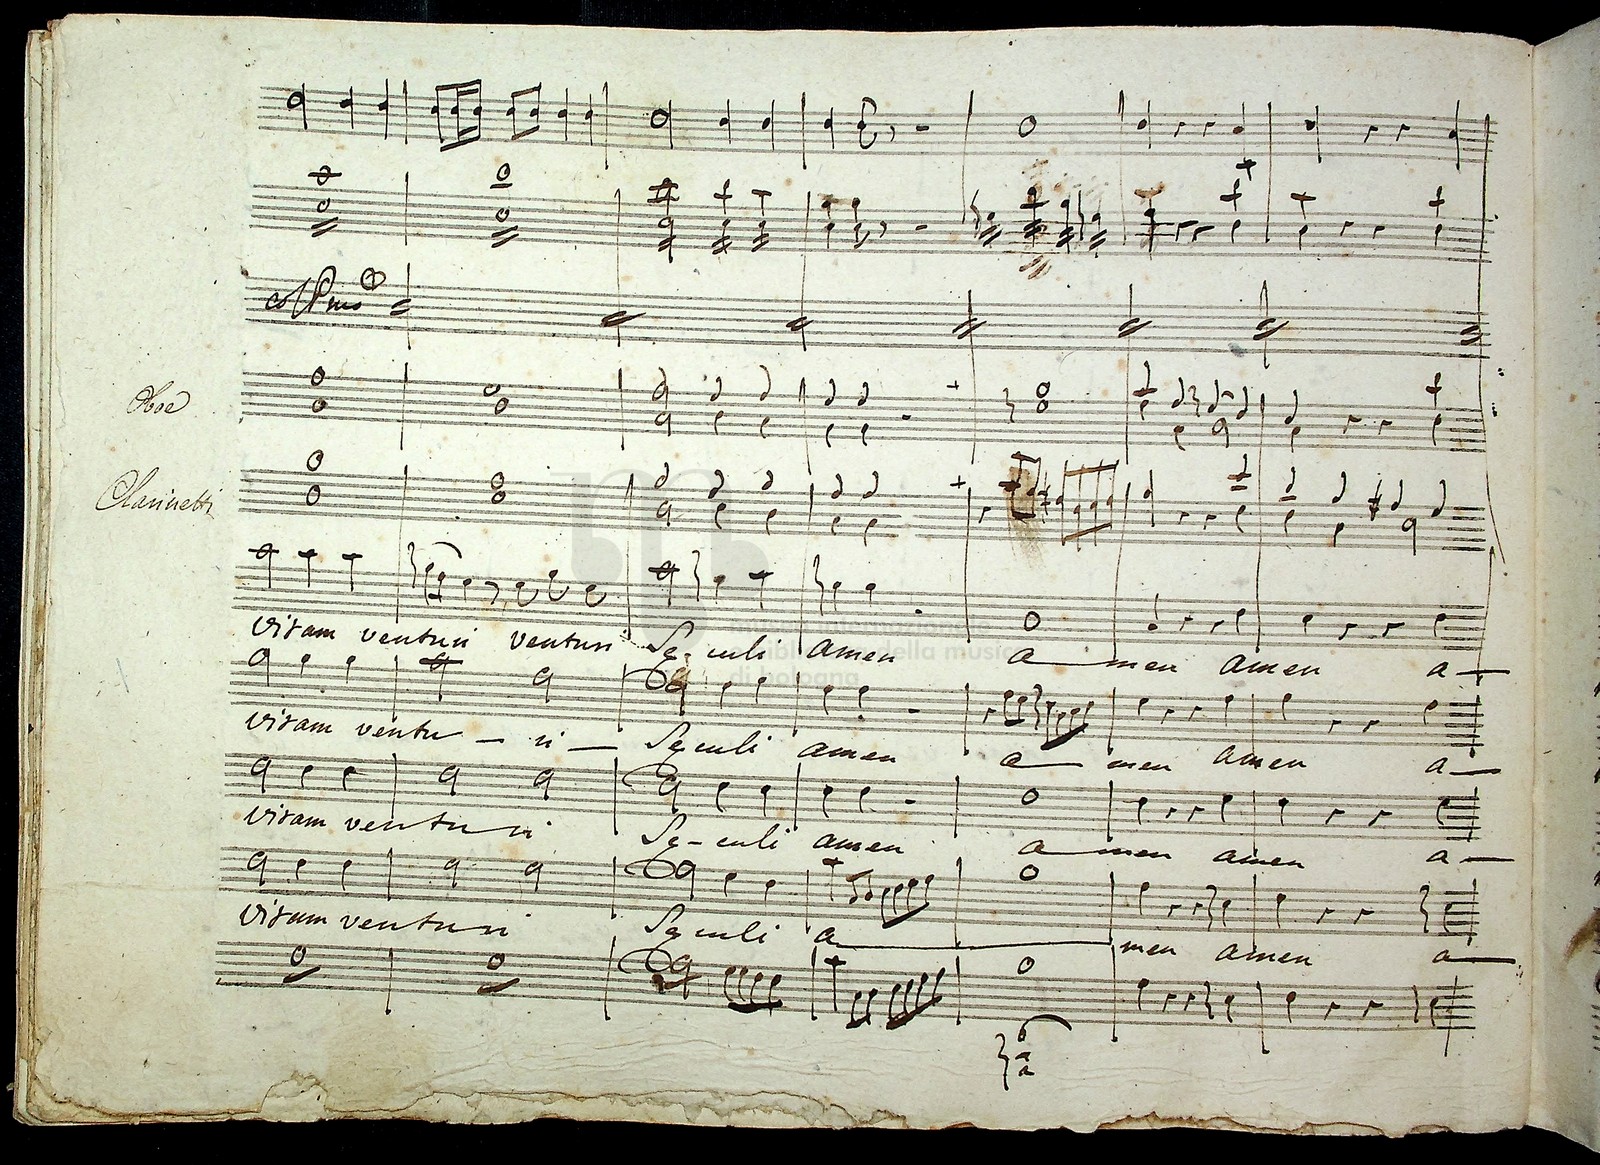 col Pmo
Oboe
Clarinetti
museo internazionale
e biblioteca della musica
di bologna
vitam venturi venturi Sẹ- culi amen a men amen a
vitam ventu - ri Sẹculi amen a men amen a
vitam venturi Sẹ-culi amen a men amen a
vitam venturi Sẹculi a men amen a